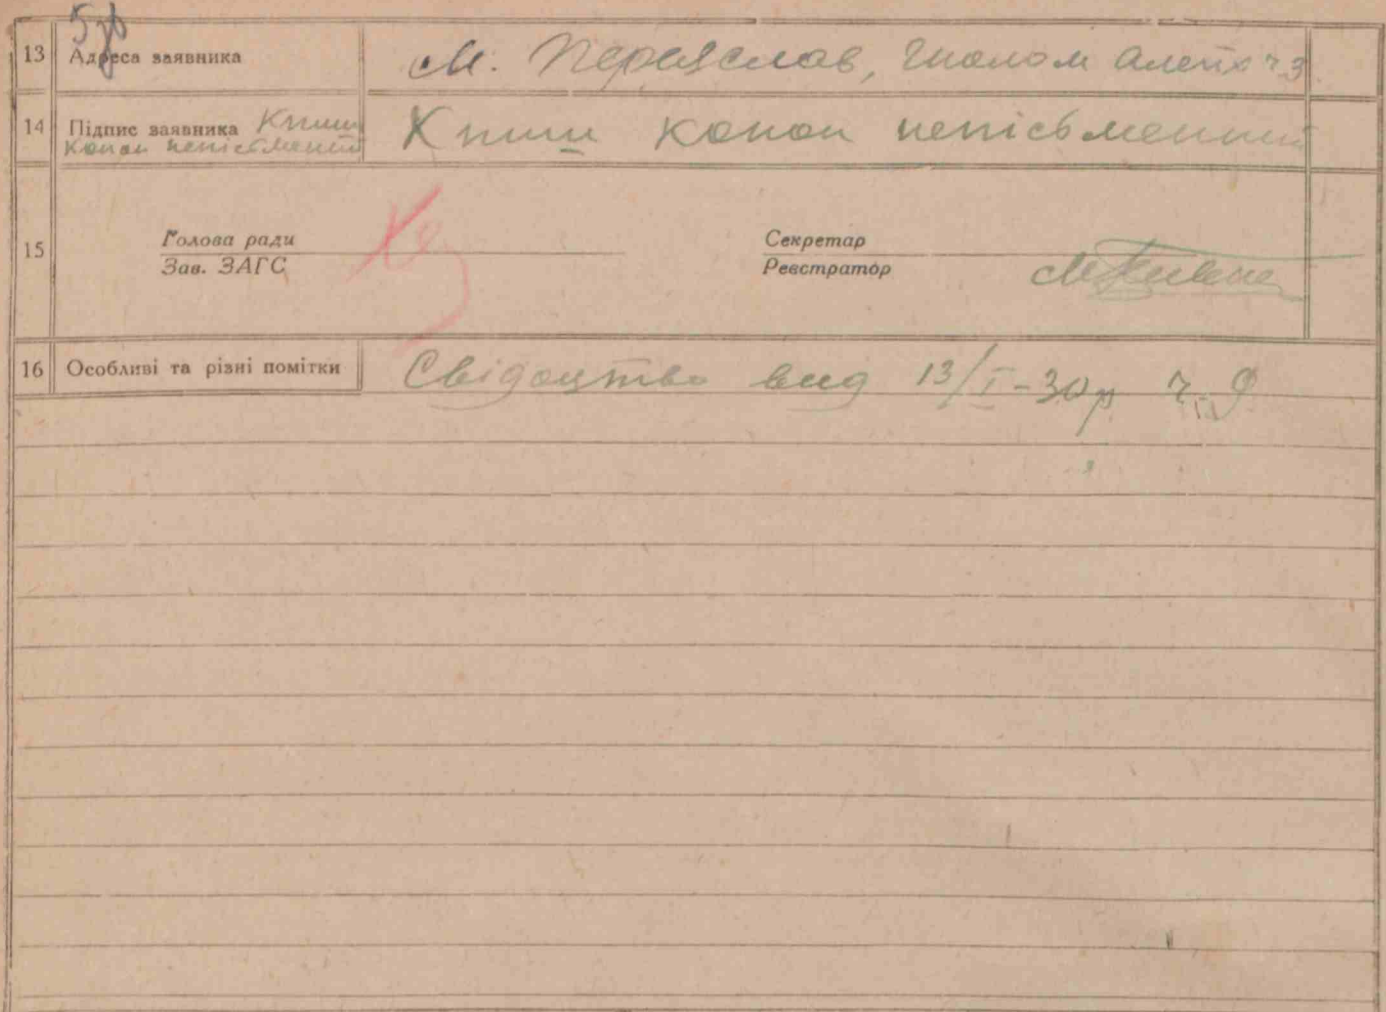 5 зв
13 Адреса заявника м. Переяслав, Шолом Алейх ч 3
14 Підпис заявника Книш Книш Конон непісьменний
Конон непісьменний
15 Голова ради Секретар
Зав. ЗАГС Реєстратор
16 Особливі та різні помітки Свідоцтво вид 13/I-30р ч. 9